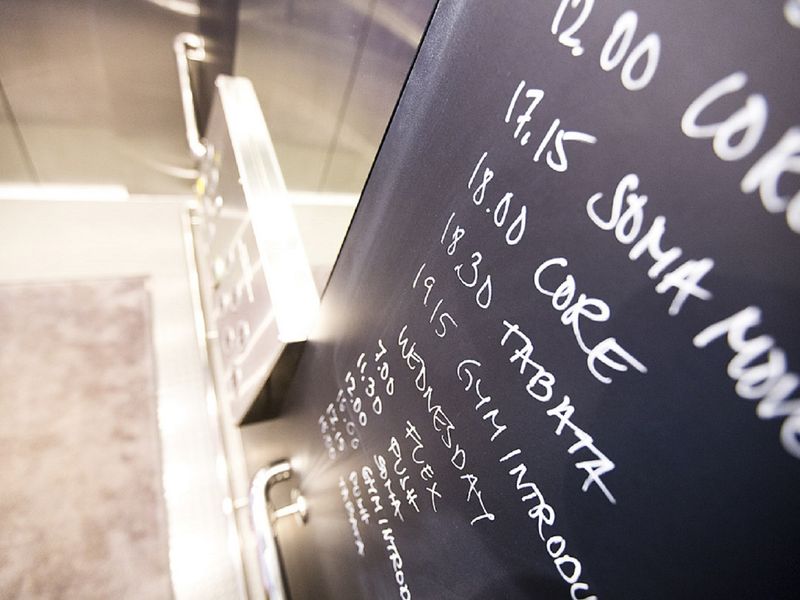 12.00 CORE
17.15 SOMA MOVE
18.00 CORE
18.30 TABATA
19.15 GYM INTRODU
WEDNESDAY
7.00 FLEX
11.30 PUSH
12.00 SOMA
GYM INTROD
PUSH
TABATA